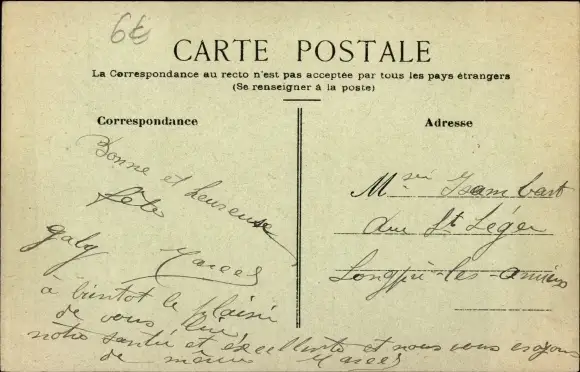 6€
CARTE POSTALE
La Correspondance au recto n'est pas acceptée par tous les pays étrangers
(Se renseigner à la poste)
Correspondance
Bonne et heureuse
fête
gaby Marcel
à bientot le plaisir
de vous lire,
notre santé et excellente et nous vous esayons
de même Marcel
Adresse
Msieur Isambart
rue St Léger
Longpré-les-amiens